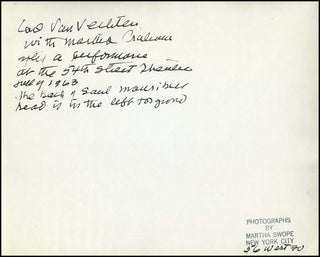 Carl Van Vechten
with Martha Graham
after a performance
at the 54th Street Theatre
July 1963
The back of Saul
head is in the left foreground
PHOTOGRAPHS
BY
MARTHA SWOPE
NEW YORK CITY
26 West 70